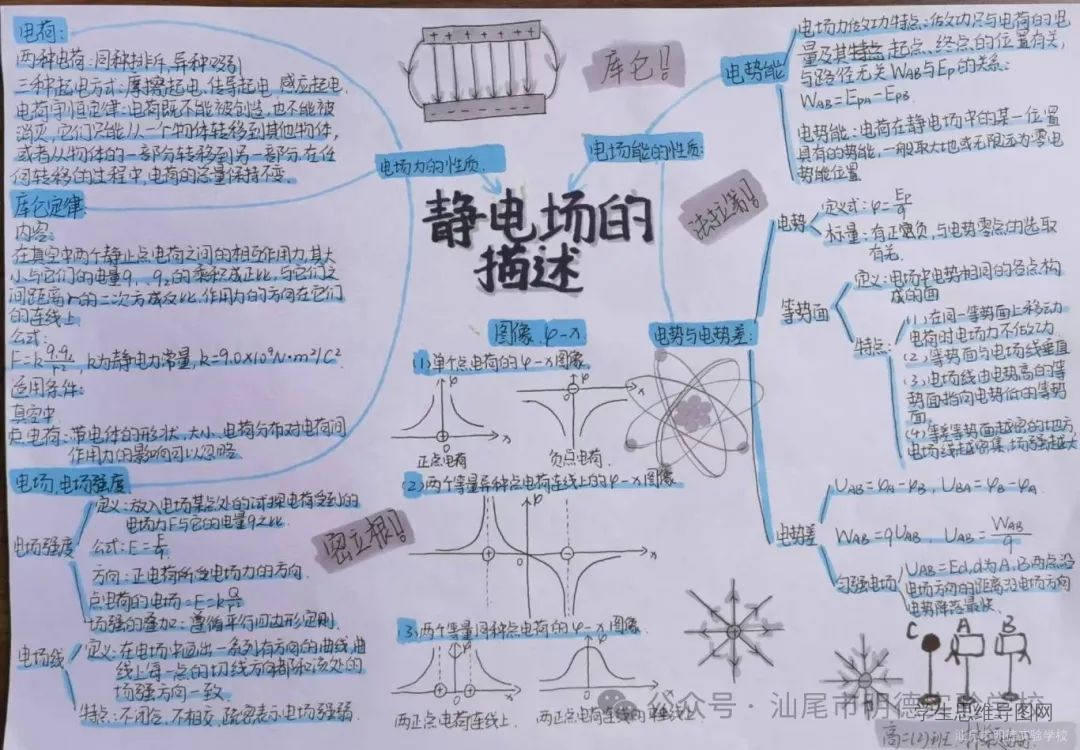 电荷:
两种电荷:同种排斥,异种吸引
三种起电方式:摩擦起电,传导起电,感应起电.
电荷守恒定律:电荷既不能被创造,也不能被
消灭,它们只能从一个物体转移到其他物体,
或者从物体的一部分转移到另一部分.在任
何转移的过程中,电荷的总量保持不变.
库仑定律
内容:
在真空中两个静止点电荷之间的相互作用力,其大
小与它们的电量q₁、q₂的乘积成正比,与它们之
间距离r的二次方成反比,作用力的方向在它们
的连线上
公式:
F=k q₁q₂/r², k为静电力常量, k=9.0×10⁹N·m²/C²
适用条件:
真空中
点电荷:带电体的形状、大小、电荷分布对电荷间
作用力的影响可以忽略
电场、电场强度
电场强度
定义:放入电场某点处的试探电荷受到的
电场力F与它的电量q之比.
公式:E=F/q
方向:正电荷所受电场力的方向.
点电荷的电场=E=kQ/r²
场强的叠加:遵循平行四边形定则.
电场线
定义:在电场中画出一系列有方向的曲线,曲
线上每一点的切线方向都和该处的
场强方向一致.
特点:不闭合,不相交,疏密表示电场强弱.
库仑!!
电场力的性质.
电场能的性质:
静电场的
描述
法拉第!!
密立根!!
图像.φ-x
(1)单个点电荷的φ-x图像.
φ
x
0
正点电荷
φ
x
0
负点电荷.
(2)两个等量异种点电荷连线上的φ-x图像
φ
x
0
(3)两个等量同种点电荷的φ-x图像.
φ
x
0
两正点电荷连线上.
φ
x
0
两正点电荷连线的中垂线上
电势能
电场力做功特点:做功只与电荷的电
量及其起点、终点的位置有关,
与路径无关 W_AB与Ep的关系:
W_AB=E_pA-E_pB.
电势能:电荷在静电场中的某一位置
具有的势能,一般取大地或无限远为零电
势能位置
电势与电势差:
电势
定义式:φ=Ep/q
标量:有正负,与电势零点的选取
有关.
等势面
定义:电场中电势相同的各点构
成的面
特点:
(1)在同一等势面上移动
电荷时电场力不做功
(2)等势面与电场线垂直
(3)电场线由电势高的等
势面指向电势低的等势
面.
(4)等差等势面越密的地方,
电场线越密集,场强越大
电势差
U_AB=φ_A-φ_B, U_BA=φ_B-φ_A.
W_AB=qU_AB U_AB=W_AB/q
匀强电场
U_AB=Ed,d为A,B两点沿
电场方向的距离.沿电场方向
电势降落最快.
C
A
B
公众号·汕尾市明德实验学校
学生思维导图网
汕尾市明德实验学校